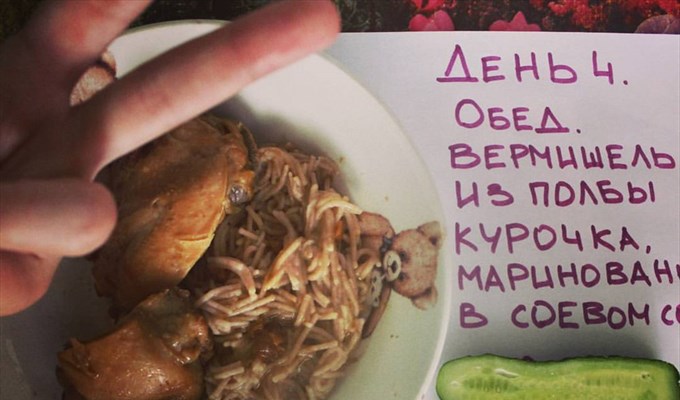 ДЕНЬ 4.
ОБЕД.
ВЕРМИШЕЛЬ
ИЗ ПОЛБЫ
КУРОЧКА,
МАРИНОВАН
В СОЕВОМ